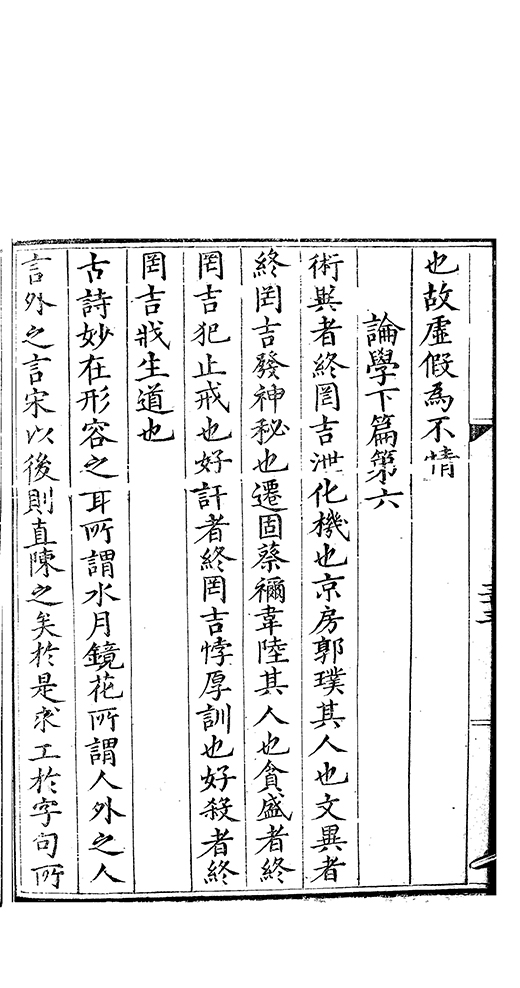 也故虛假為不情
論學下篇第六
術異者終罔吉泄化機也京房郭璞其人也文異者
終罔吉發神秘也遷固蔡禰韋陸其人也貪盛者終
罔吉犯止戒也好訐者終罔吉悖厚訓也好殺者終
罔吉戕生道也
古詩妙在形容之耳所謂水月鏡花所謂人外之人
言外之言宋以後則直陳之矣於是求工於字句所